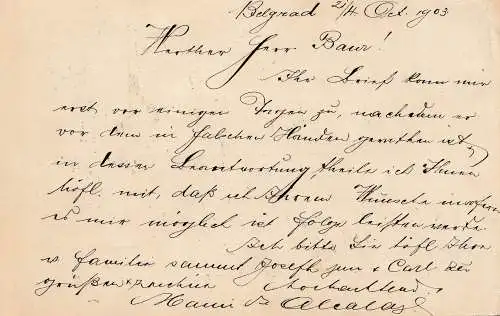 Belgrad 21/4. Oct. 1903
Werther Herr Baur!
Ihr Brief kam mir
erst vor einigen Tagen zu, nachdem er
vor dem in falschen Händen gerathen ist,
in dessen Beantwortung theile ich Ihnen
höfl. mit, daß ich Ihrem Wunsche insofern
es mir möglich ist folge leisten werde
Ich bitte Sie höfl. Ihre
w familie sammt Joseph jun & Carl bes
grüßen & zeichne Hochachtend
de Alcalay